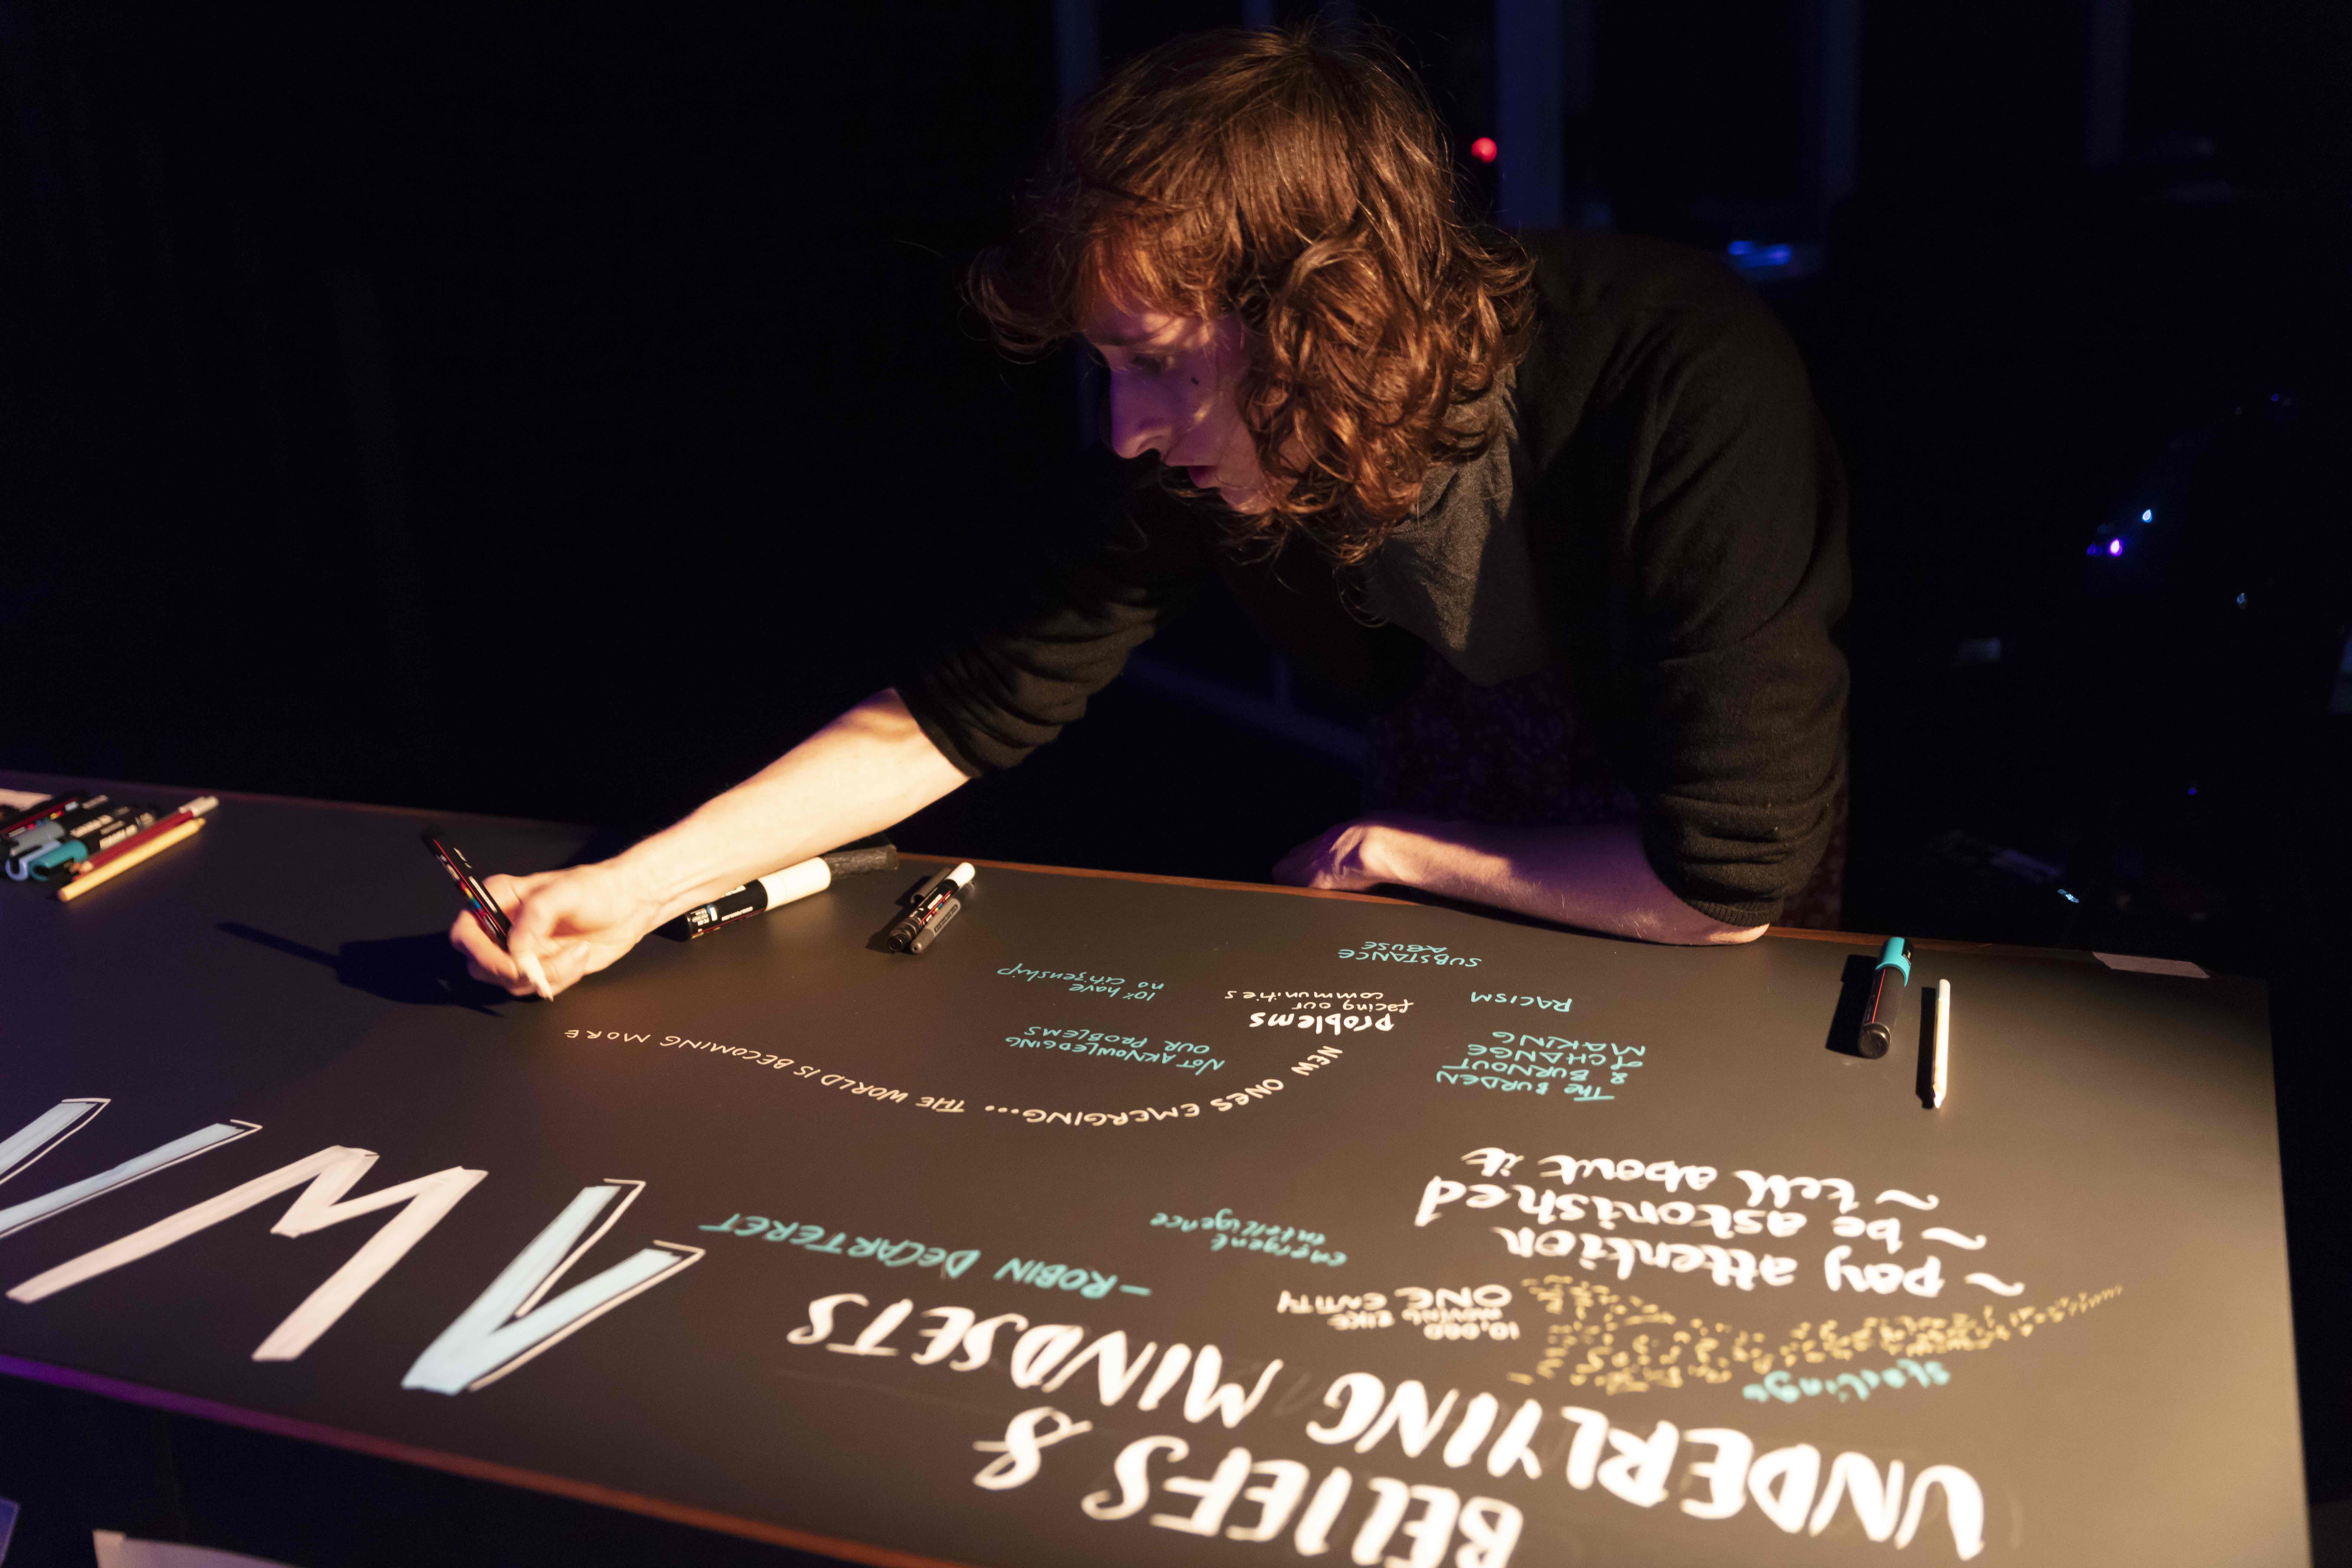 BELIEFS &
UNDERLYING MINDSETS
– ROBIN DECARTERET
starlings
10,000
MOVING LIKE
ONE ENTITY
emergent
intelligence
~ pay attention
~ be astonished
~ tell about it
THE BURDEN
& BURNOUT
of CHANGE
MAKING
RACISM
SUBSTANCE
ABUSE
problems
facing our
communities
NEW ONES EMERGING... THE WORLD IS BECOMING MORE
NOT AKNOWLEDGING
OUR PROBLEMS
10% have
no citizenship